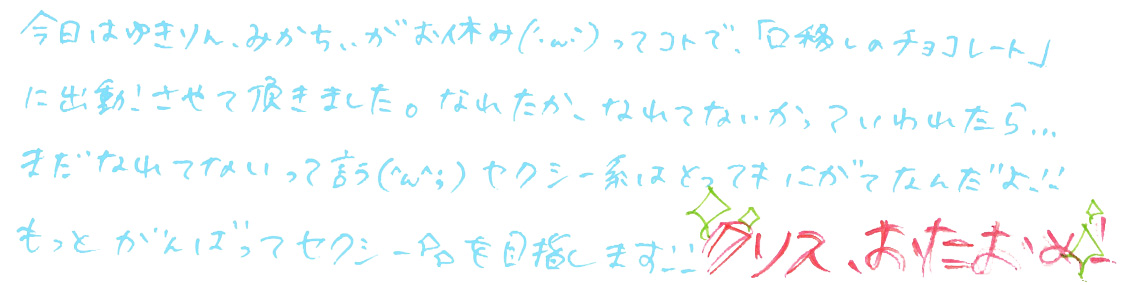 今日はゆきりん、みかちぃがお休み(´･ω･`)ってコトで、「口移しのチョコレート」
に出動!させて頂きました。なれたか、なれてないかっていわれたら...
まだなれてないって言う(^ω^;)セクシー系はとってもにがてなんだよ!!
もっとがんばってセクシー台を目指します!! クリス、おたおめ!